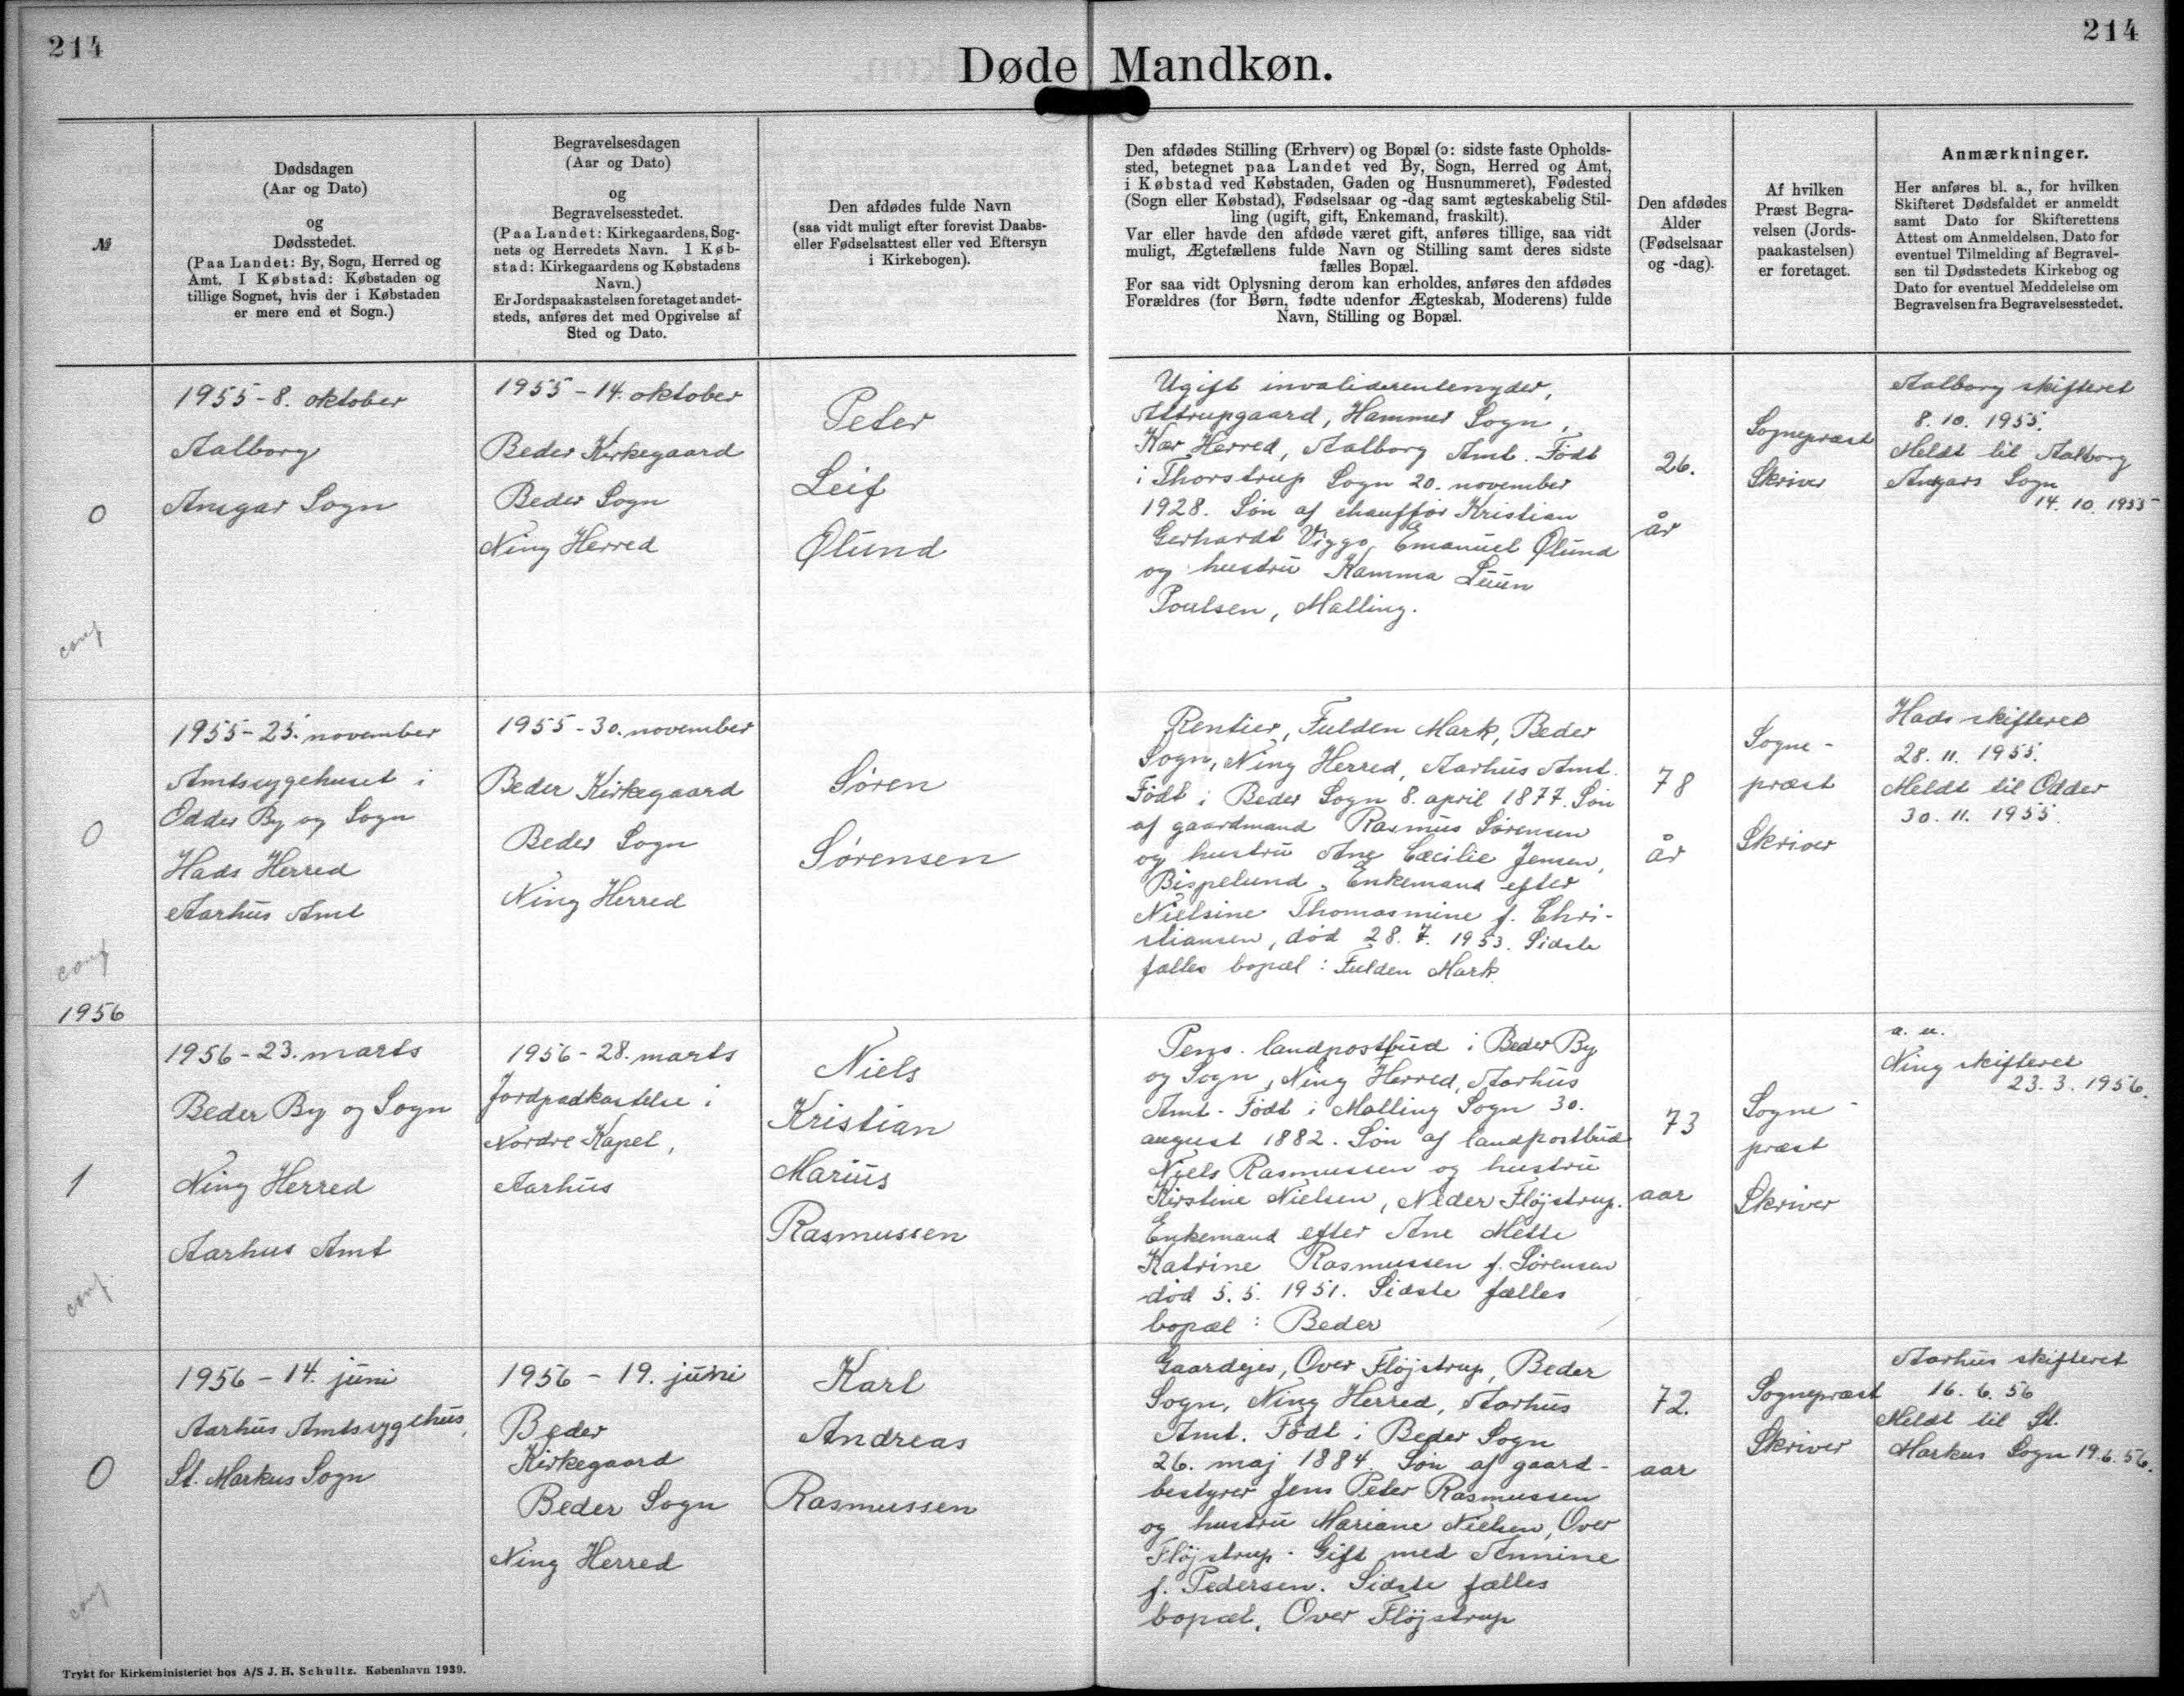 214
214
Døde Mandkøn.
№
Dødsdagen
(Aar og Dato)
og
Dødsstedet.
(Paa Landet: By, Sogn, Herred og
Amt. I Købstad: Købstaden og
tillige Sognet, hvis der i Købstaden
er mere end et Sogn.)
Begravelsesdagen
(Aar og Dato)
og
Begravelsesstedet.
(Paa Landet: Kirkegaardens, Sog-
nets og Herredets Navn. I Køb-
stad: Kirkegaardens og Købstadens
Navn.)
Er Jordspaakastelsen foretaget andet-
steds, anføres det med Opgivelse af
Sted og Dato.
Den afdødes fulde Navn
(saa vidt muligt efter forevist Daabs-
eller Fødselsattest eller ved Eftersyn
i Kirkebogen).
Den afdødes Stilling (Erhverv) og Bopæl (ɔ: sidste faste Opholds-
sted, betegnet paa Landet ved By, Sogn, Herred og Amt,
i Købstad ved Købstaden, Gaden og Husnummeret), Fødested
(Sogn eller Købstad), Fødselsaar og -dag samt ægteskabelig Stil-
ling (ugift, gift, Enkemand, fraskilt).
Var eller havde den afdøde været gift, anføres tillige, saa vidt
muligt, Ægtefællens fulde Navn og Stilling samt deres sidste
fælles Bopæl.
For saa vidt Oplysning derom kan erholdes, anføres den afdødes
Forældres (for Børn, fødte udenfor Ægteskab, Moderens) fulde
Navn, Stilling og Bopæl.
Den afdødes
Alder
(Fødselsaar
og -dag).
Af hvilken
Præst Begra-
velsen (Jords-
paakastelsen)
er foretaget.
Anmærkninger.
Her anføres bl. a., for hvilken
Skifteret Dødsfaldet er anmeldt
samt Dato for Skifterettens
Attest om Anmeldelsen, Dato for
eventuel Tilmelding af Begravel-
sen til Dødsstedets Kirkebog og
Dato for eventuel Meddelelse om
Begravelsen fra Begravelsesstedet.
0
conf
1955 - 8. oktober
Aalborg
Ansgar Sogn
1955 - 14. oktober
Beder Kirkegaard
Beder Sogn
Ning Herred
Peter
Leif
Ølund
Ugift invaliderentenyder,
Attrupgaard, Hammer Sogn,
Kær Herred, Aalborg Amt. Født
i Thorstrup Sogn 20. november
1928. Søn af chauffør Kristian
Gerhardt Viggo Emanuel Ølund
og hustru Kamma Luun
Poulsen, Malling.
26.
år
Sognepræst
Skriver
Aalborg skifteret
8. 10. 1955.
Meldt til Aalborg
Ansgars Sogn
14. 10. 1955
0
conf
1955 - 25. november
Amtssygehuset i
Odder By og Sogn
Hads Herred
Aarhus Amt
1955 - 30. november
Beder Kirkegaard
Beder Sogn
Ning Herred
Søren
Sørensen
Rentier, Fulden Mark, Beder
Sogn, Ning Herred, Aarhus Amt.
Født i Beder Sogn 8. april 1877. Søn
af gaardmand Rasmus Sørensen
og hustru Ane Cæcilie Jensen,
Bispelund. Enkemand efter
Nielsine Thomasmine f. Chri-
stiansen, død 28. 7. 1953. Sidste
fælles bopæl: Fulden Mark.
78
år
Sogne-
præst
Skriver
Hads skifteret
28. 11. 1955.
Meldt til Odder
30. 11. 1955.
1956
1
conf.
1956 - 23. marts
Beder By og Sogn
Ning Herred
Aarhus Amt
1956 - 28. marts
Jordpaakastelse i
Nordre Kapel,
Aarhus
Niels
Kristian
Marius
Rasmussen
Pens. landpostbud i Beder By
og Sogn, Ning Herred, Aarhus
Amt. Født i Malling Sogn 30.
august 1882. Søn af landpostbud
Niels Rasmussen og hustru
Kirstine Nielsen, Neder Fløjstrup.
Enkemand efter Ane Mette
Katrine Rasmussen f. Sørensen
død 5. 5. 1951. Sidste fælles
bopæl: Beder
73
aar
Sogne-
præst
Skriver
a. u.
Ning skifteret
23. 3. 1956.
0
conf
1956 - 14. juni
Aarhus Amtssygehus,
St. Markus Sogn
1956 - 19. juni
Beder
Kirkegaard
Beder Sogn
Ning Herred
Karl
Andreas
Rasmussen
Gaardejer, Over Fløjstrup, Beder
Sogn, Ning Herred, Aarhus
Amt. Født i Beder Sogn
26. maj 1884. Søn af gaard-
bestyrer Jens Peter Rasmussen
og hustru Mariane Nielsen, Over
Fløjstrup. Gift med Annine
f. Pedersen. Sidste fælles
bopæl, Over Fløjstrup
72.
aar
Sognepræst
Skriver
Aarhus skifteret
16. 6. 56
Meldt til St.
Markus Sogn 19. 6. 56.
Trykt for Kirkeministeriet hos A/S J. H. Schultz. København 1939.